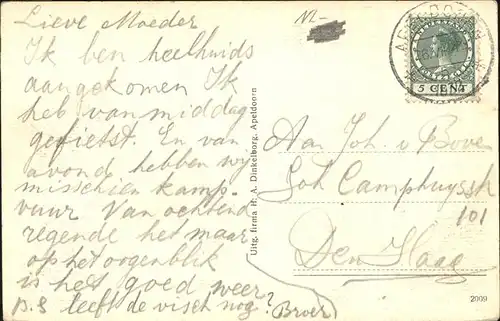 Lieve Moeder
Ik ben heelhuids
aangekomen Ik
heb van middag
gefietst. En van
avond hebben wij
misschien kamp-
vuur Van ochtend
regende het maar
op het oogenblik
is het goed weer
P.S leeft de visch nog?
Broer
Uitg. firma H. A. Dinkelborg, Apeldoorn
NL-
APELDOORN
5 CENT
Aan Joh. v Boven
Joh Camphuysstr
101
Den Haag
2009